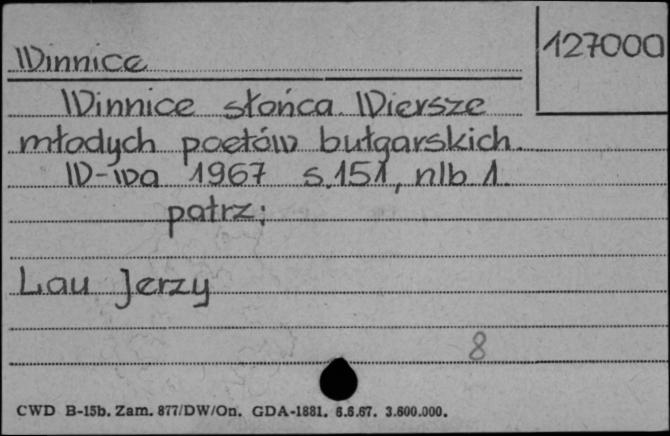 Winnice
127000
Winnice słońca. Wiersze
młodych poetów bułgarskich.
W-wa 1967 s.151, nlb. 1.
patrz:
Lau Jerzy
8
CWD B-15b. Zam. 877/DW/On. GDA-1881. 6.6.67. 3.600.000.